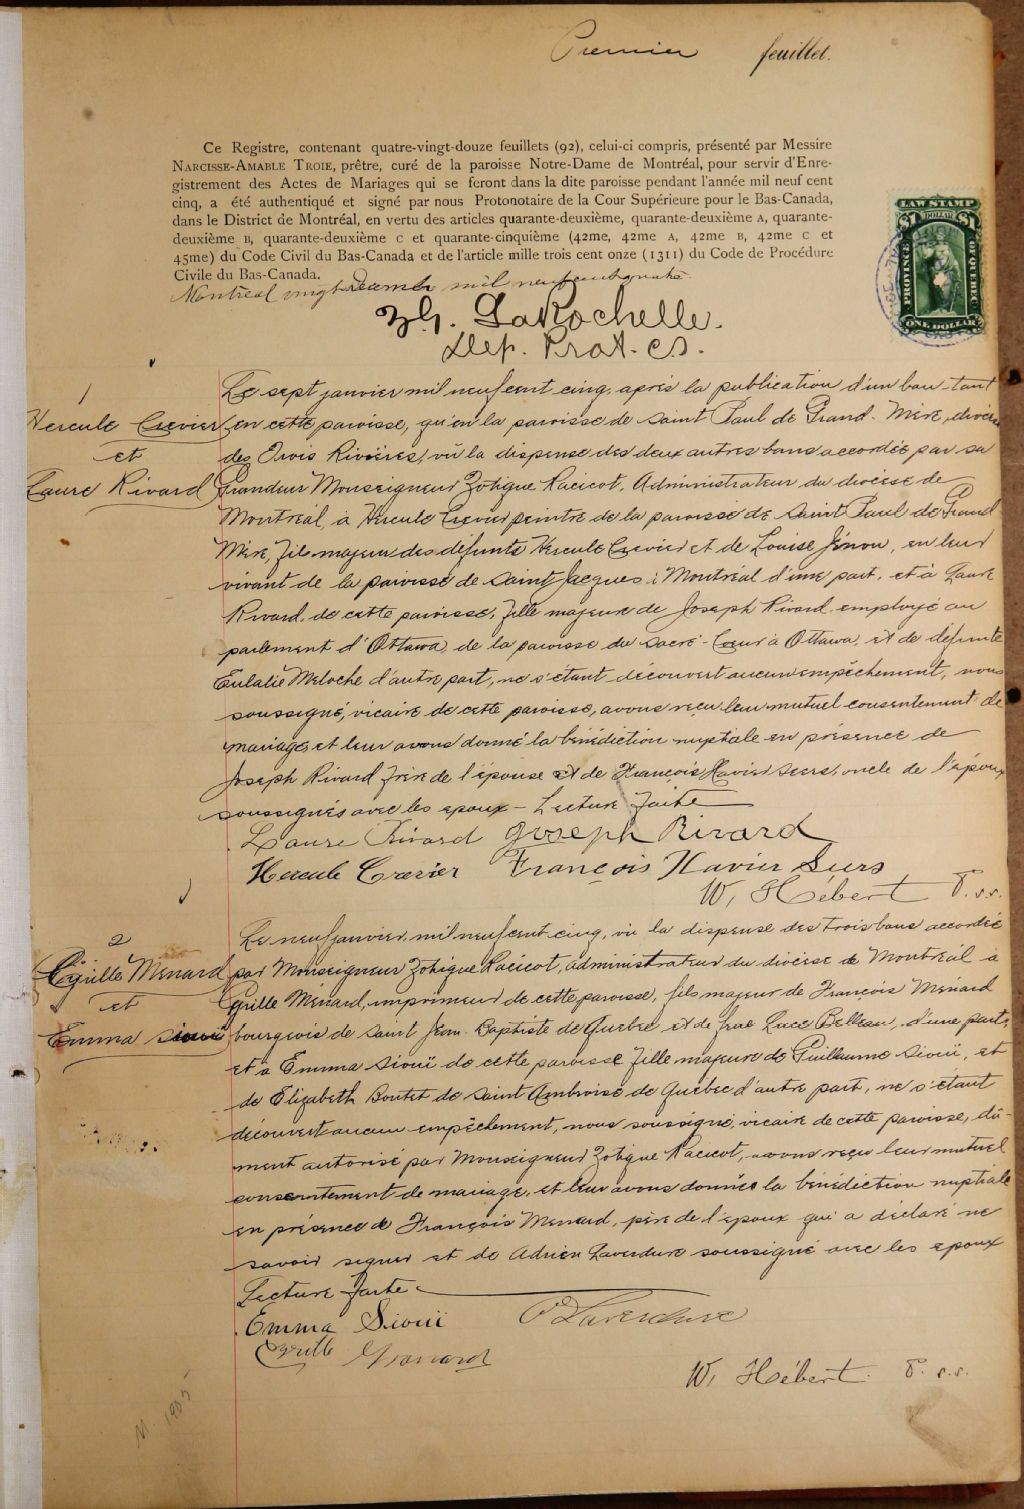 Premier feuillet.
Ce Registre, contenant quatre-vingt-douze feuillets (92), celui-ci compris, présenté par Messire
NARCISSE-AMABLE TROIE, prêtre, curé de la paroisse Notre-Dame de Montréal, pour servir d'Enre-
gistrement des Actes de Mariages qui se feront dans la dite paroisse pendant l'année mil neuf cent
cinq, a été authentiqué et signé par nous Protonotaire de la Cour Supérieure pour le Bas-Canada,
dans le District de Montréal, en vertu des articles quarante-deuxième, quarante-deuxième A, quarante-
deuxième B, quarante-deuxième C et quarante-cinquième (42me, 42me A, 42me B, 42me C et
45me) du Code Civil du Bas-Canada et de l'article mille trois cent onze (1311) du Code de Procédure
Civile du Bas-Canada.
LAW STAMP
$1 DOLLAR $1
PROVINCE OF QUEBEC
ONE DOLLAR
Montréal vingt Décembre mil neuf cent quatre
LaRochelle.
Dep. Prot. C.S.
1
Hercule Crevier
et
Laure Rivard
Le sept janvier mil neuf cent cinq, après la publication d'un ban tant
en cette paroisse, qu'en la paroisse de Saint Paul de Grand-Mère, diocèse
des Trois Rivières, vû la dispense des deux autres bans accordée par sa
Grandeur Monseigneur Zotique Racicot, Administrateur du diocèse de
Montréal, à Hercule Crevier peintre de la paroisse de Saint Paul de Grand
Mère, fils majeur des défunts Hercule Crevier et de Louise Jénon, en leur
vivant de la paroisse de Saint Jacques à Montréal d'une part, et à Laure
Rivard, de cette paroisse, fille majeure de Joseph Rivard employé au
parlement d'Ottawa, de la paroisse du Sacré-Coeur à Ottawa, et de défunte
Eulalie Meloche d'autre part, ne s'étant découvert aucun empêchement, nous
soussigné, vicaire de cette paroisse, avons reçu leur mutuel consentement de
mariage, et leur avons donné la bénédiction nuptiale en présence de
Joseph Rivard frère de l'épouse et de François Xavier Seers, oncle de l'époux
soussignés avec les epoux - Lecture faite
Laure Rivard Joseph Rivard
Hercule Crevier François Xavier Seers
W. Hébert P. s.s.
2
Cyrille Menard
et
Emma Siouï
Le neuf janvier, mil neuf cent cinq, vû la dispense des trois bans accordée
par Monseigneur Zotique Racicot, administrateur du diocèse de Montréal à
Cyrille Ménard, imprimeur de cette paroisse, fils majeur de François Ménard
bourgeois de Saint Jean-Baptiste de Québec et de feue Luce Belleau, d'une part,
et à Emma Siouï de cette paroisse fille majeure de Guillaume Siouï, et
de Elizabeth Boutet de Saint Ambroise de Québec d'autre part, ne s'étant
découvert aucun empêchement, nous soussigné, vicaire de cette paroisse, dû-
ment autorisé par Monseigneur Zotique Racicot, avons reçu leur mutuel
consentement de mariage, et leur avons donnée la bénédiction nuptiale
en présence de François Menard, père de l'epoux qui a déclaré ne
savoir signer et de Adrien Laverdure soussigné avec les epoux
Lecture faite
Emma Siouï Laverdure
Cyrille Menard
W. Hébert P. s.s.
M. 1905